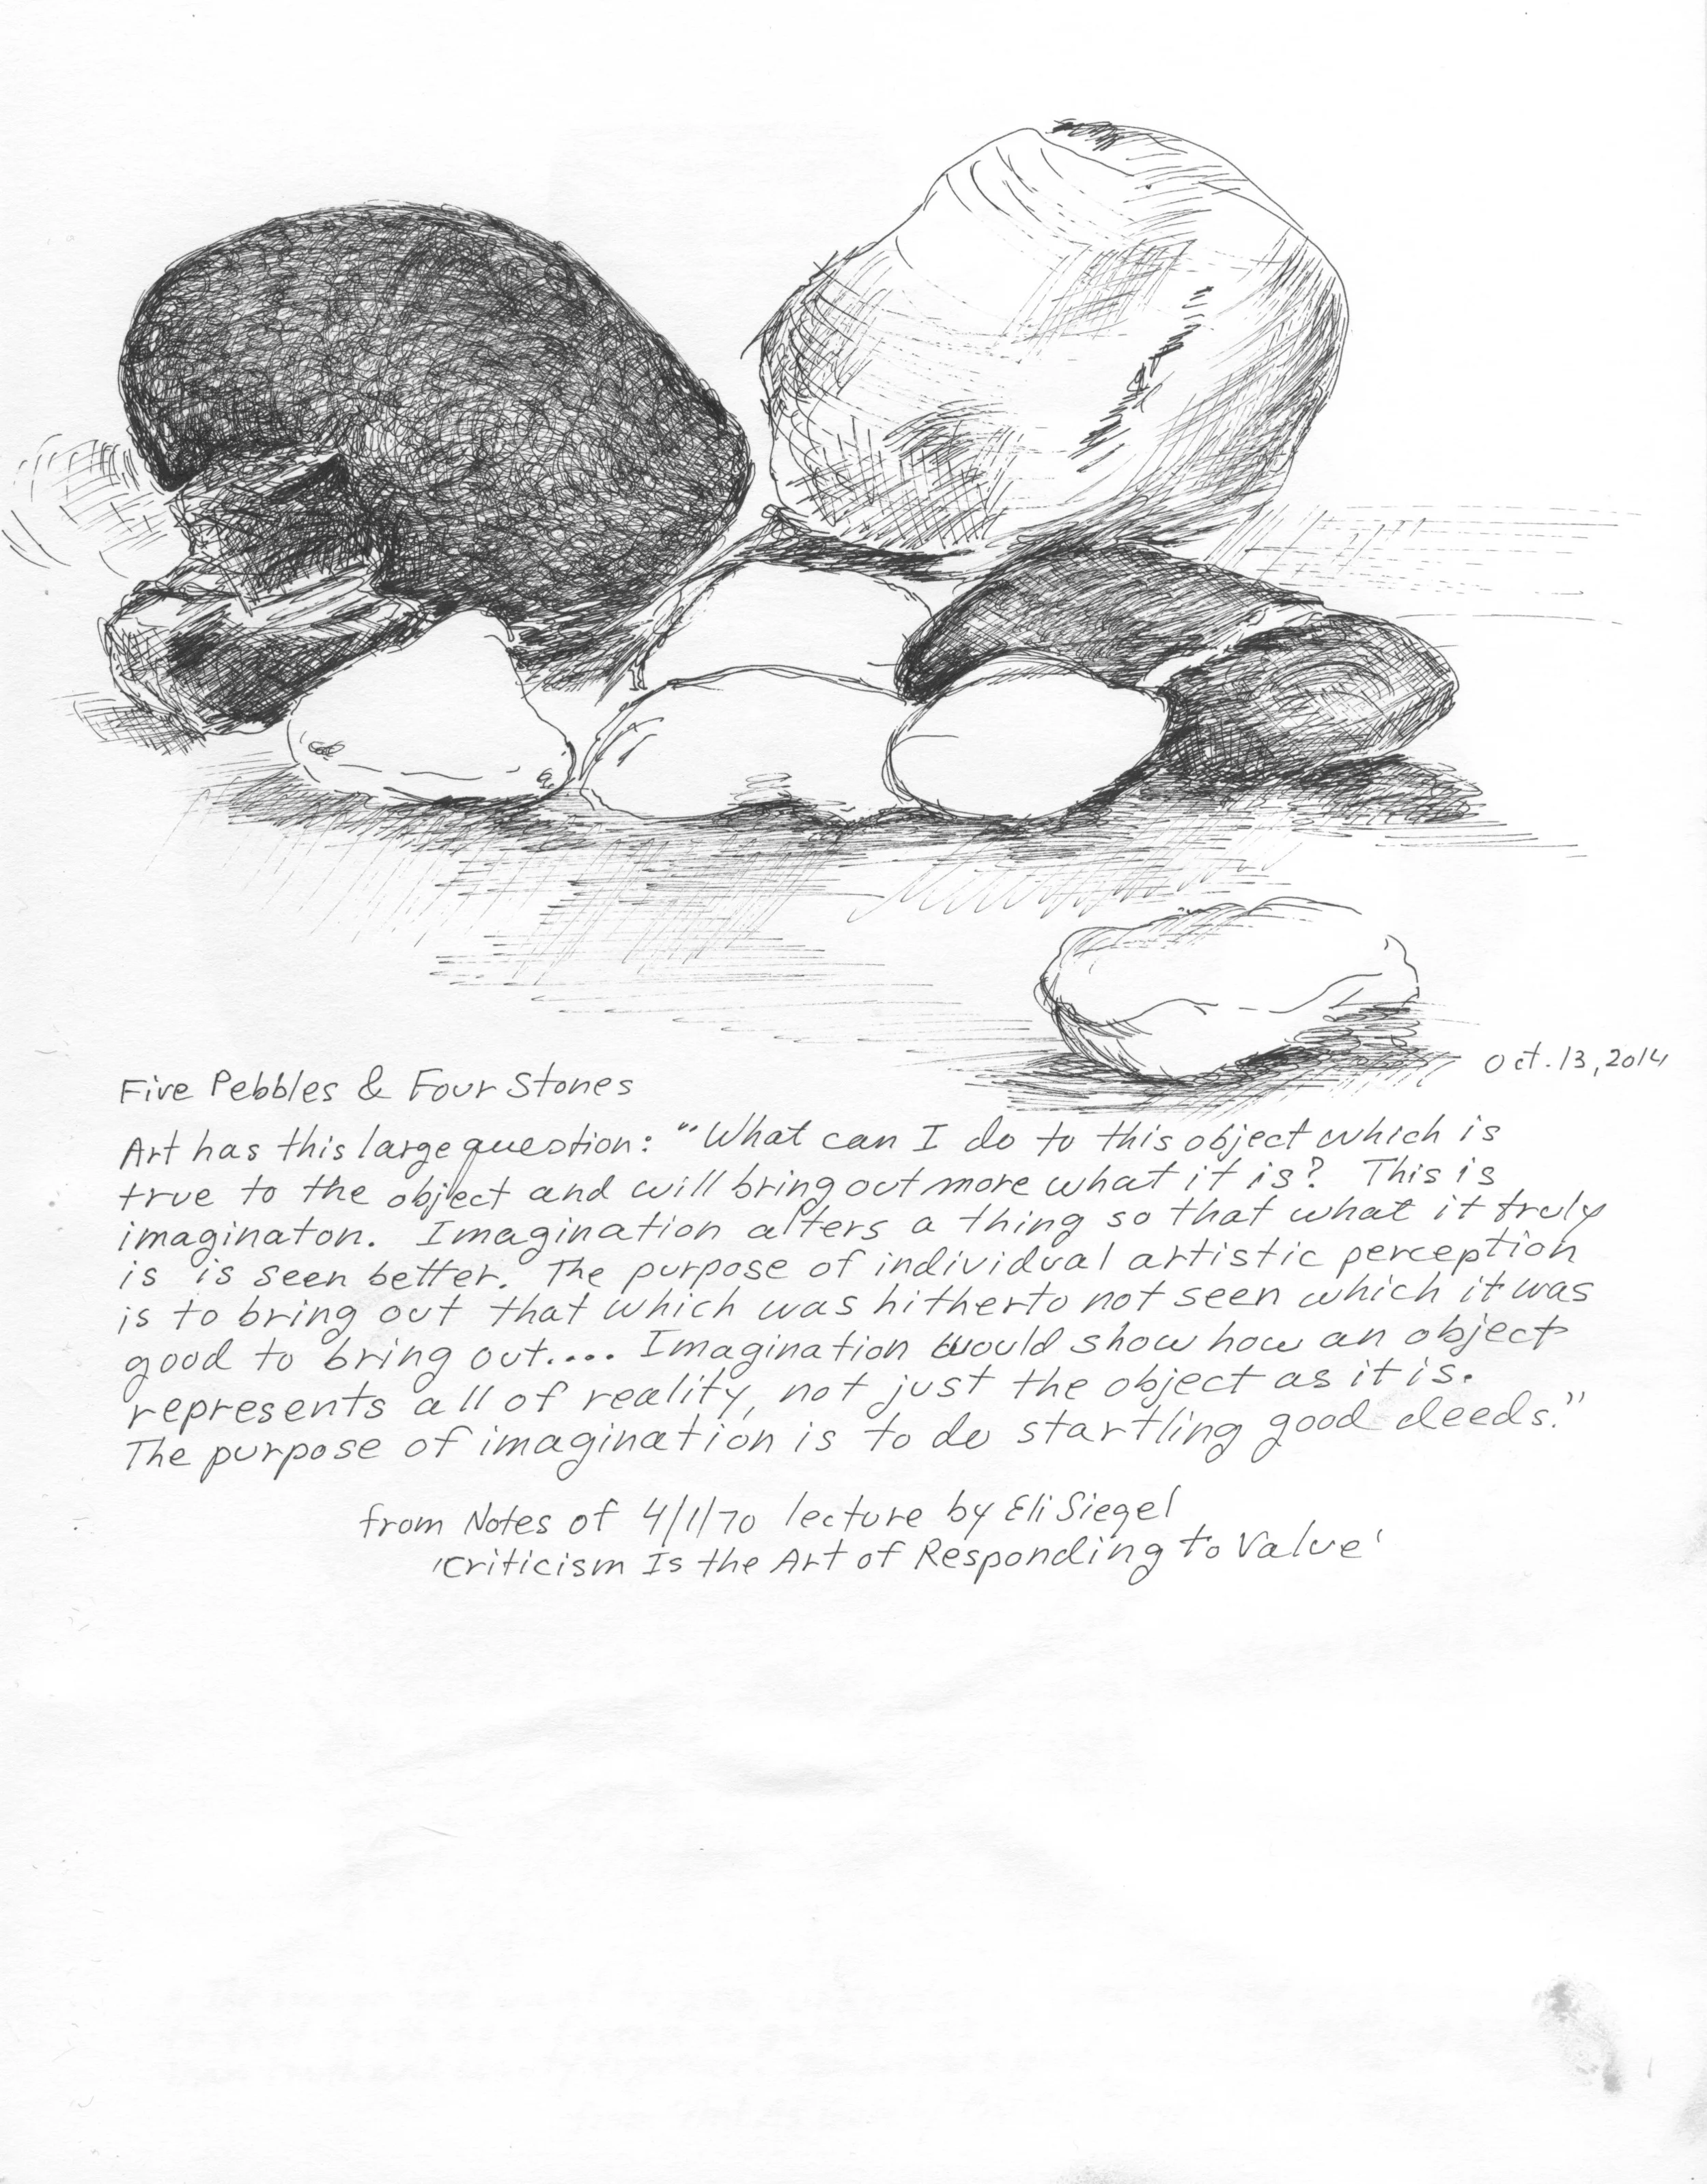 Oct. 13, 2014
Five Pebbles & Four Stones
Art has this large question: "What can I do to this object which is
true to the object and will bring out more what it is? This is
imaginaton. Imagination alters a thing so that what it truly
is is seen better. The purpose of individual artistic perception
is to bring out that which was hitherto not seen which it was
good to bring out.... Imagination would show how an object
represents all of reality, not just the object as it is.
The purpose of imagination is to do startling good deeds."
from Notes of 4/1/70 lecture by Eli Siegel
'Criticism Is the Art of Responding to Value'